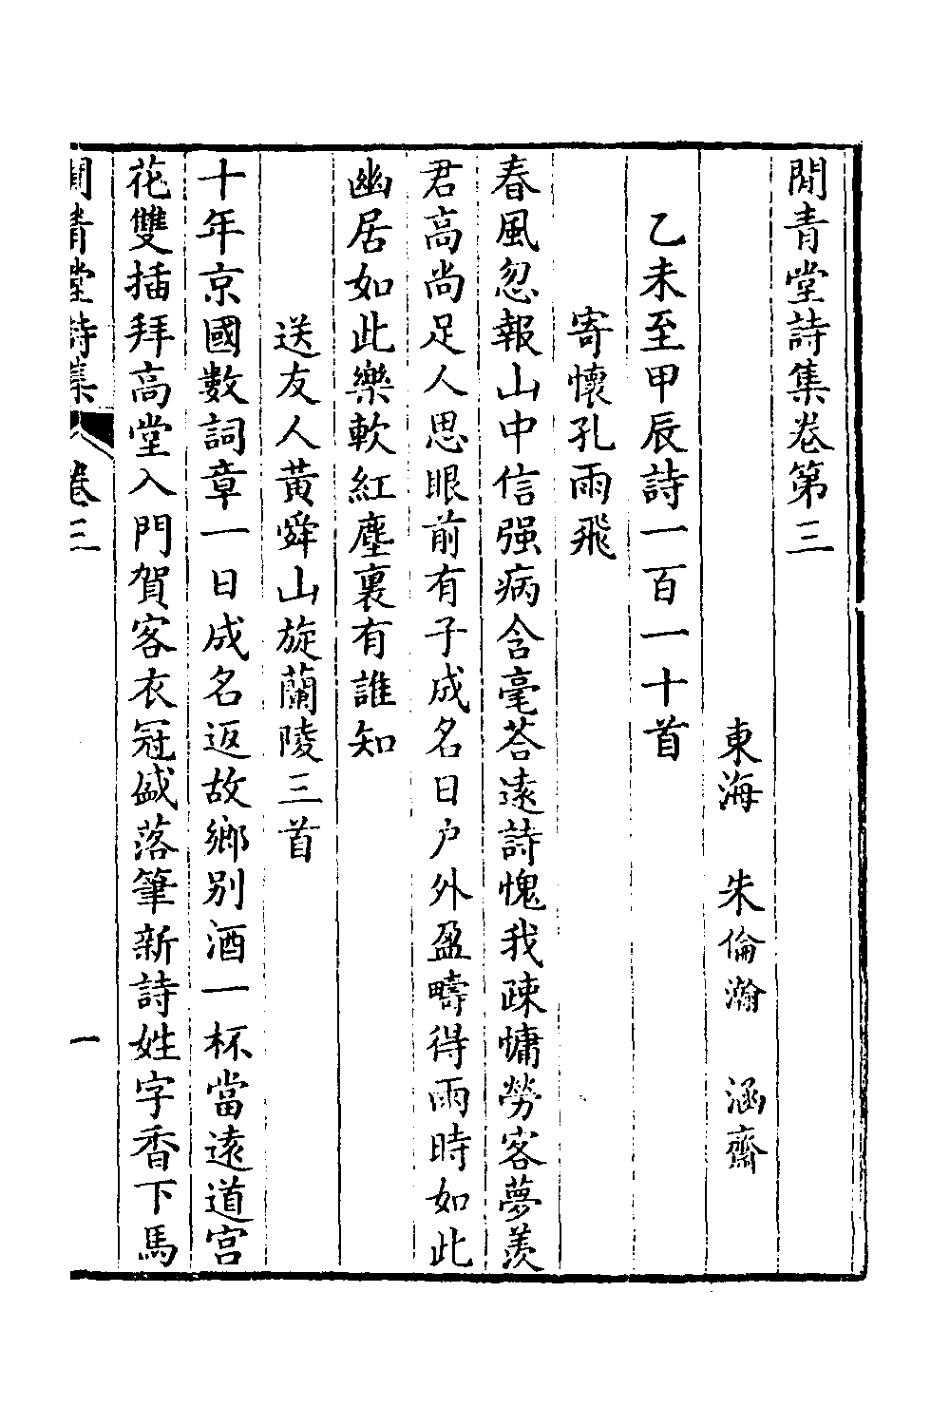 閒青堂詩集卷第三
東海 朱倫瀚 涵齋
乙未至甲辰詩一百一十首
寄懷孔雨飛
春風忽報山中信强病含毫荅遠詩愧我疎慵勞客夢羨
君高尚足人思眼前有子成名日户外盈疇得雨時如此
幽居如此樂軟紅塵裏有誰知
送友人黃舜山旋蘭陵三首
十年京國數詞章一日成名返故鄉别酒一杯當遠道宫
花雙插拜高堂入門賀客衣冠盛落筆新詩姓字香下馬
閒青堂詩集 卷三 一